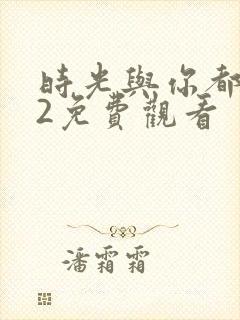 時光與你都
2免費觀看
潘霜霜